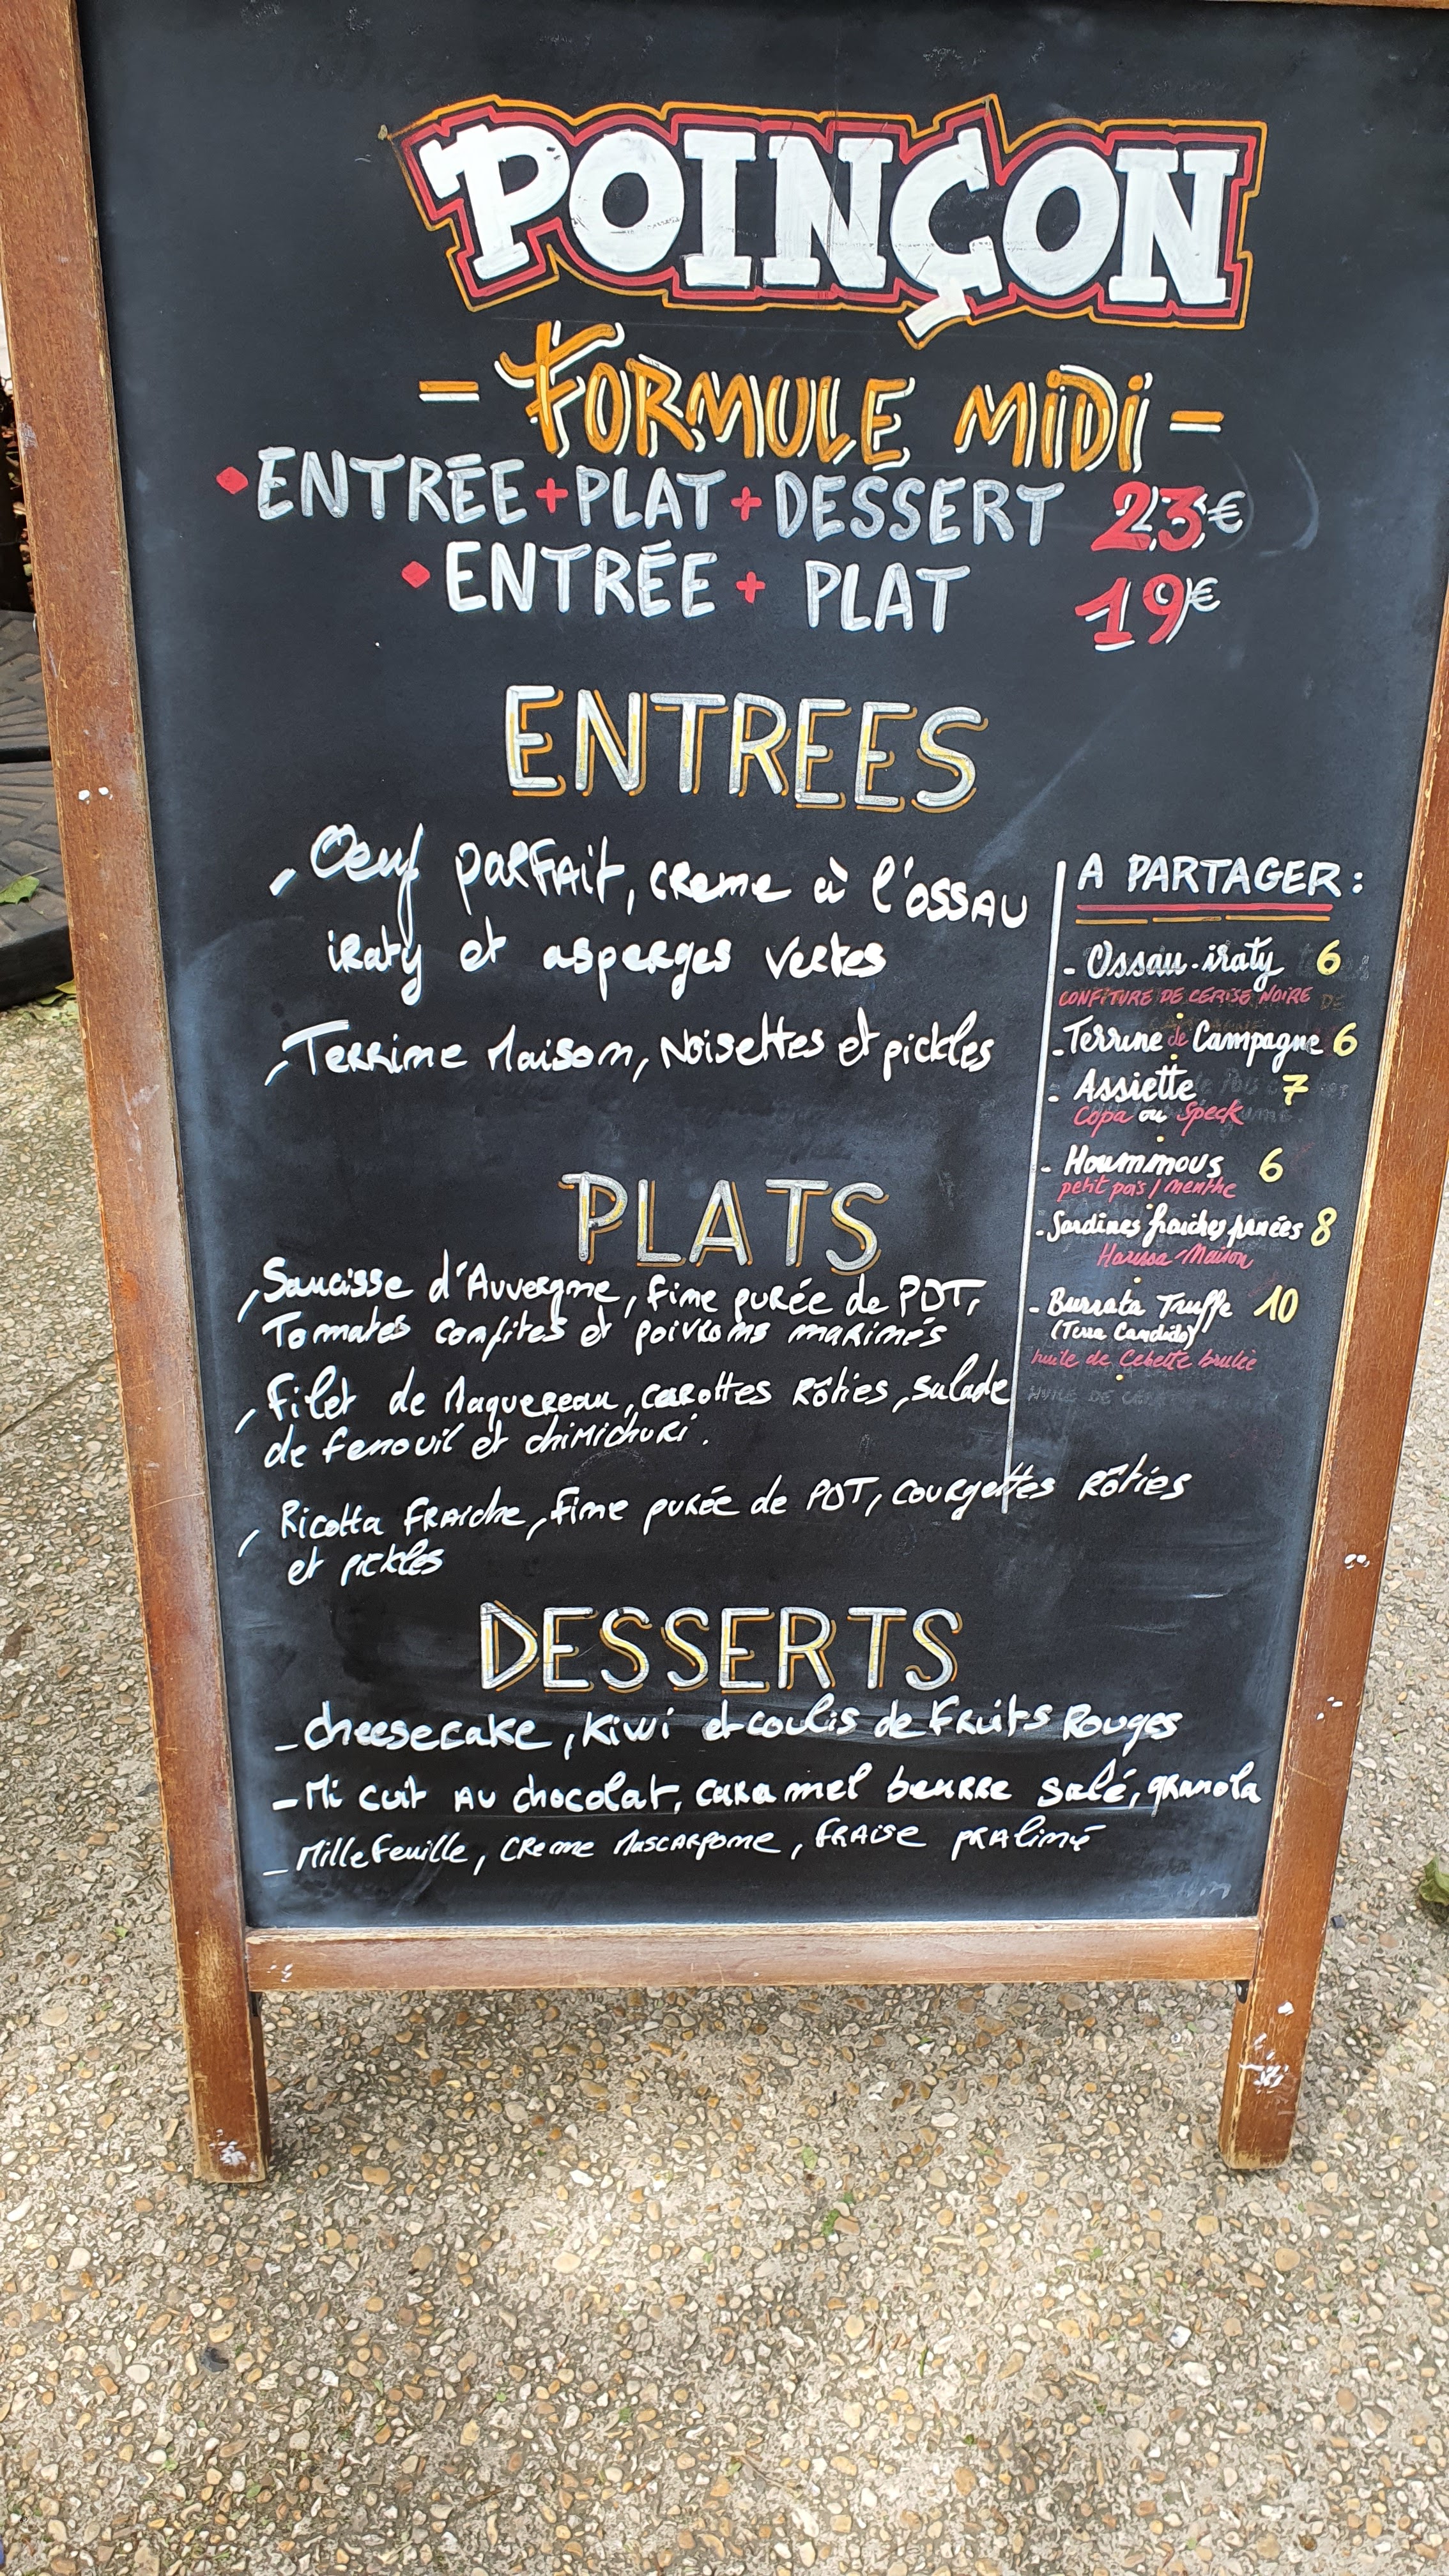 POINÇON
- FORMULE MIDI -
ENTRÉE + PLAT + DESSERT 23€
ENTRÉE + PLAT 19€
ENTREES
- Oeuf parfait, creme à l'ossau
iraty et asperges vertes
- Terrine Maison, Noisettes et pickles
A PARTAGER :
- Ossau-iraty 6
CONFITURE DE CERISE NOIRE
- Terrine de Campagne 6
- Assiette 7
Copa ou Speck
- Hoummous 6
petit pois / menthe
- Sardines fraiches panées 8
Harissa Maison
- Burrata Truffe 10
(Terra Candido)
huile de Cebette brulée
PLATS
- Saucisse d'Auvergne, fine purée de PDT,
Tomates confites et poivrons marinés
- Filet de Maquereau, carottes Rôties, salade
de fenouil et chimichuri.
- Ricotta fraiche, fine purée de PDT, courgettes Rôties
et pickles
DESSERTS
- cheesecake, kiwi et coulis de Fruits Rouges
- Mi cuit au chocolat, caramel beurre salé, granola
- Millefeuille, Creme Mascarpone, fraise praliné